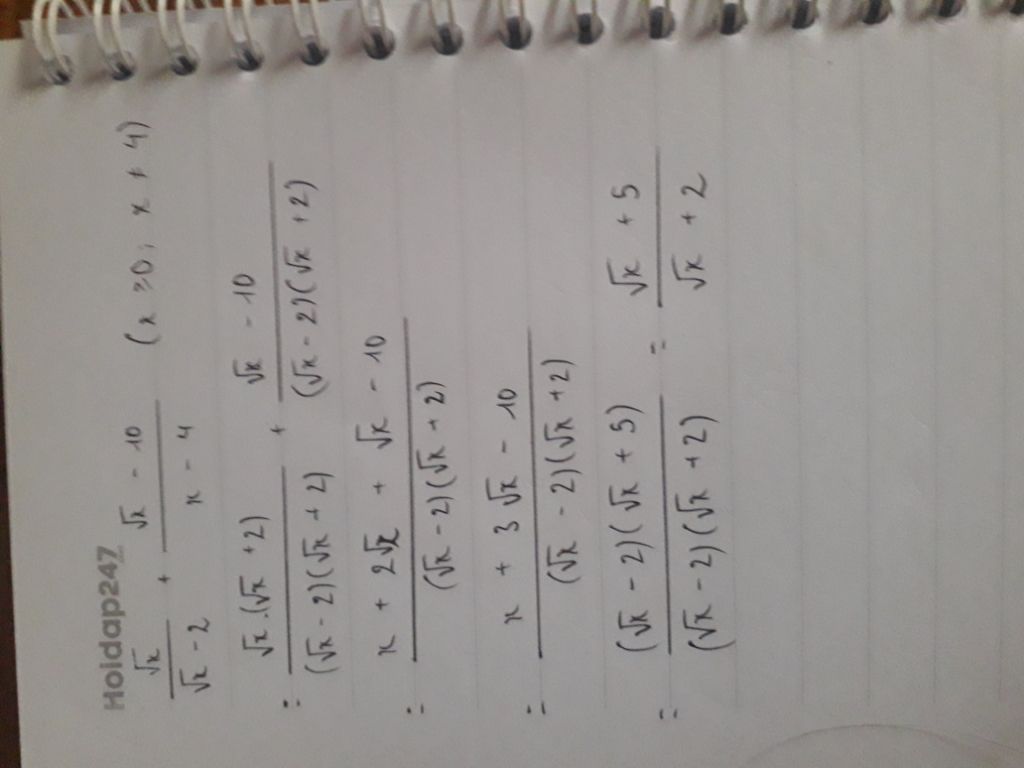 Hoidap247
√x / (√x - 2) + (√x - 10) / (x - 4) (x ≥ 0, x ≠ 4)
= √x.(√x + 2) / (√x - 2)(√x + 2) + (√x - 10) / (√x - 2)(√x + 2)
= (x + 2√x + √x - 10) / (√x - 2)(√x + 2)
= (x + 3√x - 10) / (√x - 2)(√x + 2)
= (√x - 2)(√x + 5) / (√x - 2)(√x + 2) = (√x + 5) / (√x + 2)